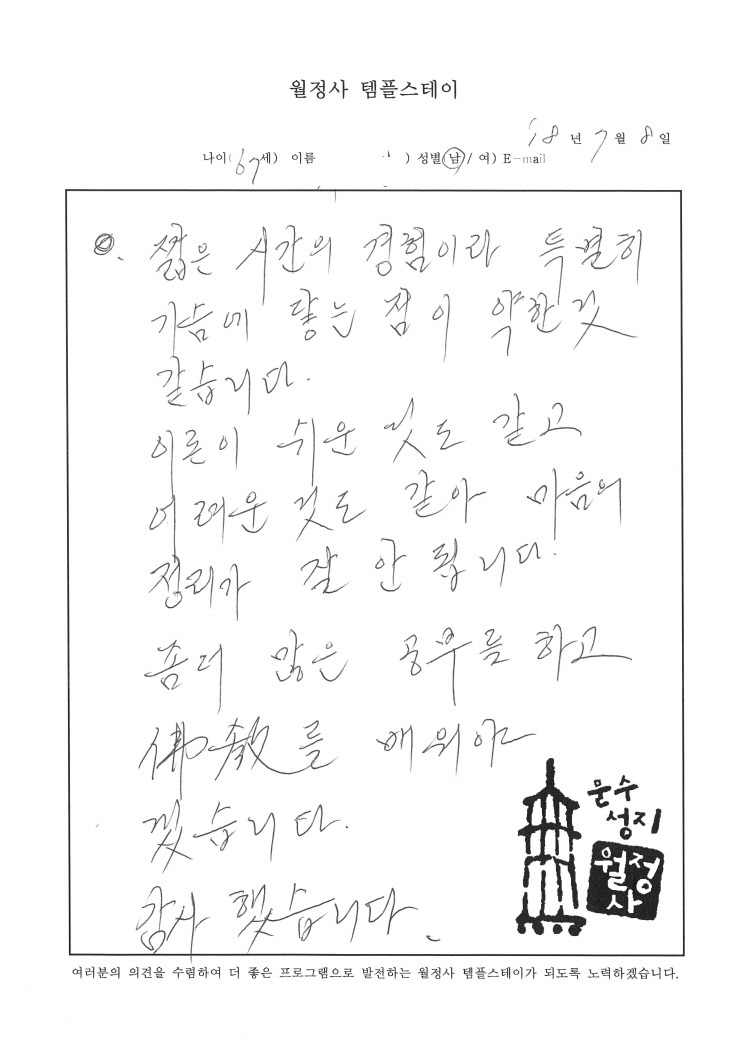 월정사 템플스테이
'18 년 7 월 8 일
나이(67세) 이름 ) 성별(남/ 여) E-mail
짧은 시간의 경험이라 특별히
가슴에 닿는 점이 약한것
같습니다.
이론이 쉬운 것도 같고
어려운 것도 같아 마음의
정리가 잘 안 됩니다.
좀더 많은 공부를 하고
佛教를 배워야
겠습니다.
감사 했습니다.
문수
성지
월정
사
여러분의 의견을 수렴하여 더 좋은 프로그램으로 발전하는 월정사 템플스테이가 되도록 노력하겠습니다.